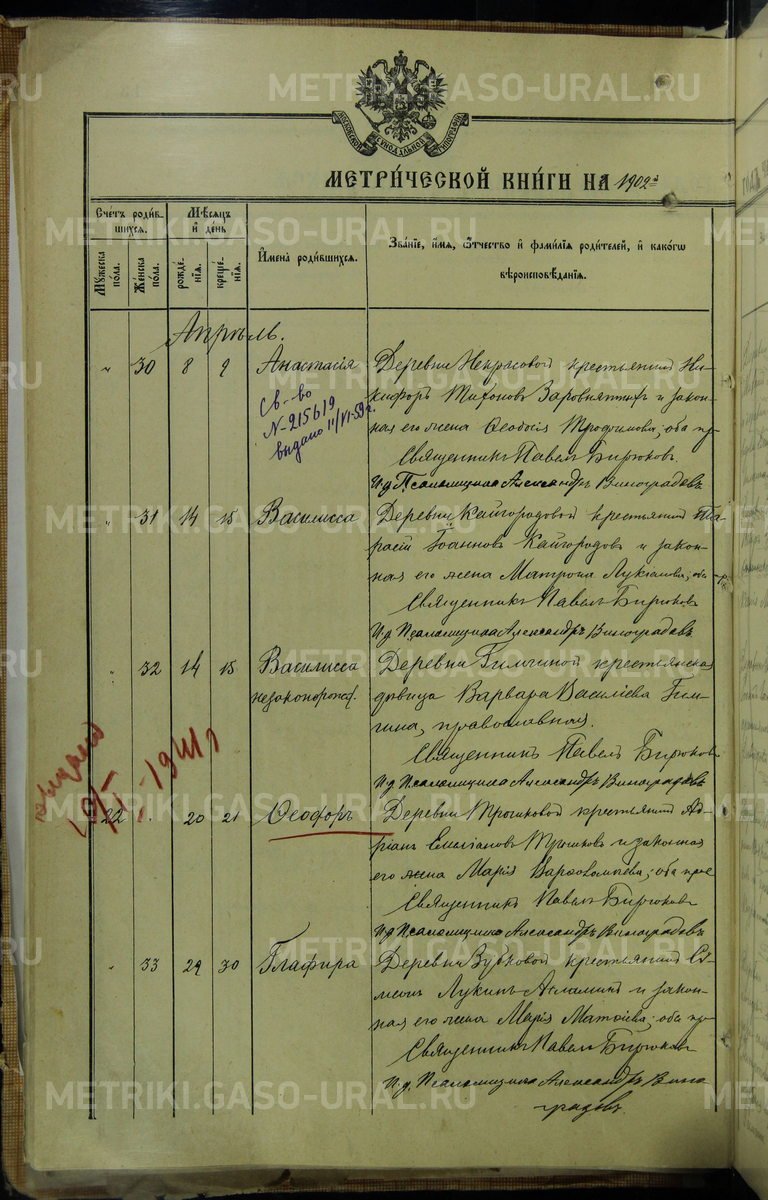 МЕТРИЧЕСКОЙ КНИГИ НА 1902
Счетъ родив-
шихся.
Мѣсяцъ
и день
Мужеска
пола.
Женска
пола.
рожде-
нія.
креще-
нія.
Имена родившихся.
Званіе, имя, отчество и фамилія родителей, и какогѡ
вѣроисповѣданія.
Апрѣль.
" 30 8 9 Анастасія Деревни Некрасовой крестьянинъ Ни-
кифоръ Тихоновъ и закон-
Св-во
N-215619
выдано 11/VI-59 г.
ная его жена Ѳеодосія Трофимова, оба пр
Священникъ Павелъ Бирюковъ
И.д. Псаломщика Александръ Виноградовъ
" 31 14 15 Василисса Деревни Кайгородовой крестьянинъ Та-
расій Іоанновъ Кайгородовъ и закон-
ная его жена Матрона Лукіанова, оба пр
Священникъ Павелъ Бирюковъ
И.д. Псаломщика Александръ Виноградовъ
" 32 14 15 Василисса Деревни Гилиной крестьянская
незаконорожд. дѣвица Варвара Василіева
православная.
Священникъ Павелъ Бирюковъ
И.д. Псаломщика Александръ Виноградовъ
1941 г
22 " 20 21 Ѳеофоръ Деревни Трошковой крестьянинъ Ад-
ріанъ Емиліановъ Трошковъ и законная
его жена Марія Варѳоломеева, оба прав
Священникъ Павелъ Бирюковъ
И.д. Псаломщика Александръ Виноградовъ
" 33 29 30 Глафира Деревни Зуековой крестьянинъ Си-
меонъ Лукинъ и закон-
ная его жена Марія Матѳіева, оба пр
Священникъ Павелъ Бирюковъ
И.д. Псаломщика Александръ Вино-
градовъ.
METRIKI.GASO-URAL.RU